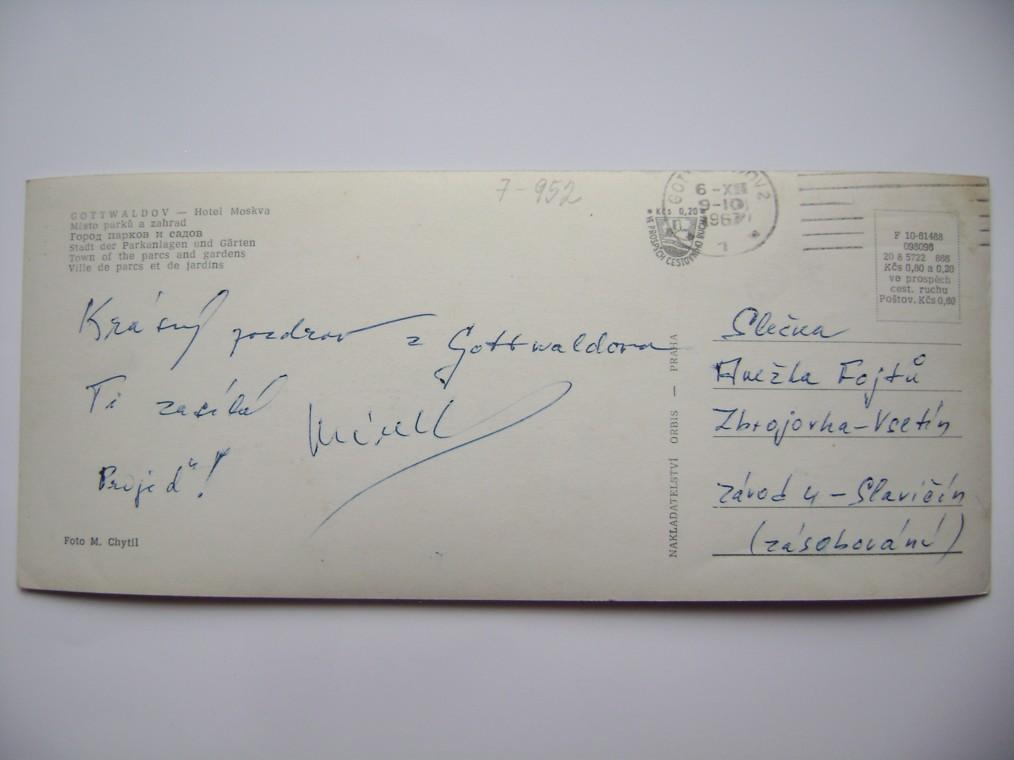 7-952
GOTTWALDOV — Hotel Moskva
Město parků a zahrad
Город парков и садов
Stadt der Parkanlagen und Gärten
Town of the parcs and gardens
Ville de parcs et de jardins
6-XII
9-10
Kčs 0,20
VE PROSPĚCH CESTOVNÍHO RUCHU
F 10-61468
098096
20 8 5722 868
Kčs 0,60 a 0,20
ve prospěch
cest. ruchu
Poštov. Kčs 0,60
Krásný pozdrav z Gottwaldova
Ti zasílá
Přijeď!
Foto M. Chytil
NAKLADATELSTVÍ ORBIS — PRAHA
Slečna
Anežka Fojtů
Zbrojovka-Vsetín
závod 4 - Slavičín
(zásobování)